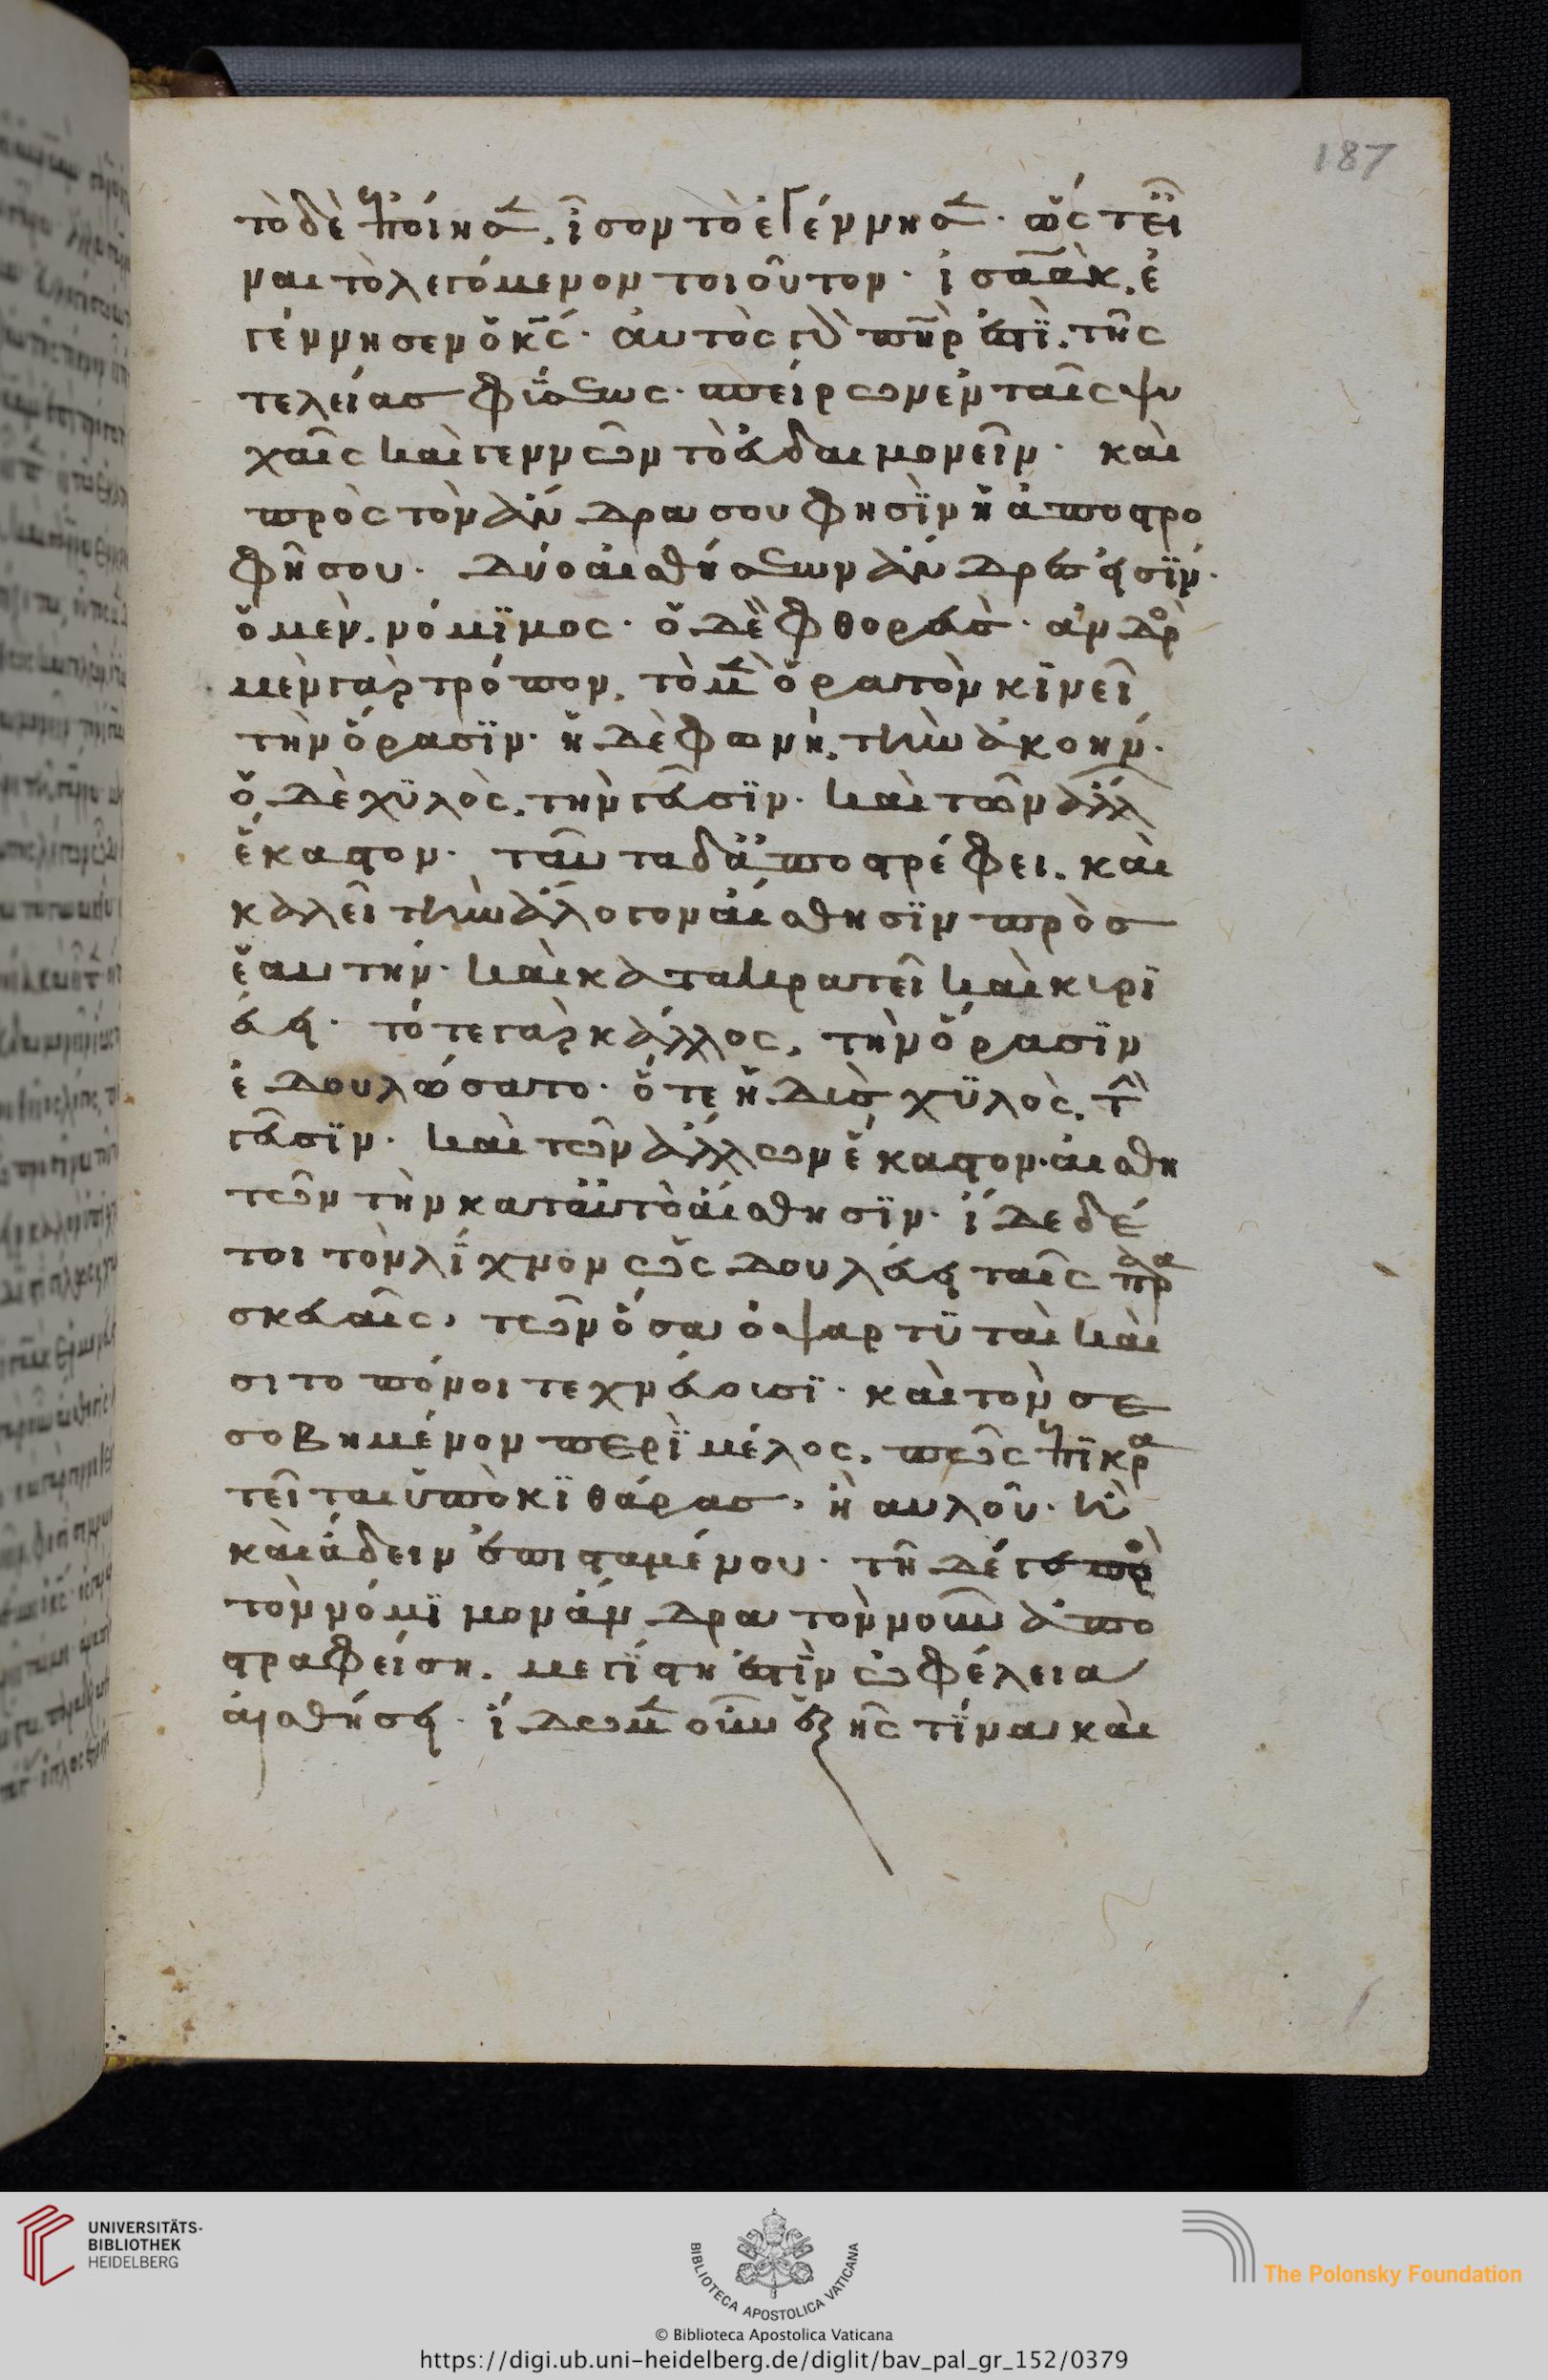 τὸ δὲ ἐποίησεν, ἶσον τὸ ἐγέννησεν· ὥς τεἶ
ναι τὸ λεγόμενον τοιοῦτον· ἰσαὰκ, ἐ
γέννησεν ὁ κ̅ς̅· αὐτὸς γὰρ π̅η̅ρ̅ ἐστὶ, τῆς
τελείας φύσεως· σπείρων ἐν ταῖς ψυ
χαῖς καὶ γεννῶν τὸ εὐδαιμονεῖν· καὶ
πρὸς τὸν ἄνδρα σου φησὶν ἡ ἀποστρο
φῆ σου· δύο αἰσθήσεων ἄνδρες εἰσίν·
ὁ μὲν, νόμιμος· ὁ δὲ φθορεὺς· ἀνδρὸς
μὲν γὰρ τρόπον, τὸ μὲν ὁρατὸν κινεῖ
τὴν ὅρασιν· ἡ δὲ φωνὴ, τὴν ἀκοήν·
ὁ δὲ χυλὸς, τὴν γεῦσιν· καὶ τῶν ἄλλων
ἕκαστον· ταῦτα δἀποστρέφει. καὶ
καλεῖ τὴν ἄλογον αἴσθησιν πρὸς
ἑαυτήν· καὶ κατακρατεῖ καὶ κυρι
εύει· τό τε γὰρ κάλλος, τὴν ὅρασιν
ἐδουλώσατο· ὅ τε ἡδὺς χυλὸς, τὴν
γεῦσιν· καὶ τῶν ἄλλων ἕκαστον· αἰσθη
τῶν τὴν κατ αὐτὸ αἴσθησιν· ἴδε δέ
τοι τὸν λίχνον ὡς δουλεύει ταῖς παρα
σκευαῖς, τῶν ὅσα ὀψαρτυταὶ καὶ
σιτοπόνοι τεχνεύουσι· καὶ τὸν σε
σοβημένον περὶ μέλος, πῶς ἐπικρα
τεῖται ὑπὸ κιθάρας, ἢ αὐλοῦ· ἢ
καὶ ἄδειν ἐπισταμένου· τῇ δέ γε πρὸς
τὸν νόμιμον ἄνδρα τὸν νοῦν ἀπο
στραφείση. μεγίστη ἐστὶν ὠφέλεια
αἰσθήσει· ἴδωμεν οὖν ἑξῆς τίνα καὶ
187
UNIVERSITÄTS-
BIBLIOTHEK
HEIDELBERG
BIBLIOTECA APOSTOLICA VATICANA
The Polonsky Foundation
© Biblioteca Apostolica Vaticana
https://digi.ub.uni-heidelberg.de/diglit/bav_pal_gr_152/0379